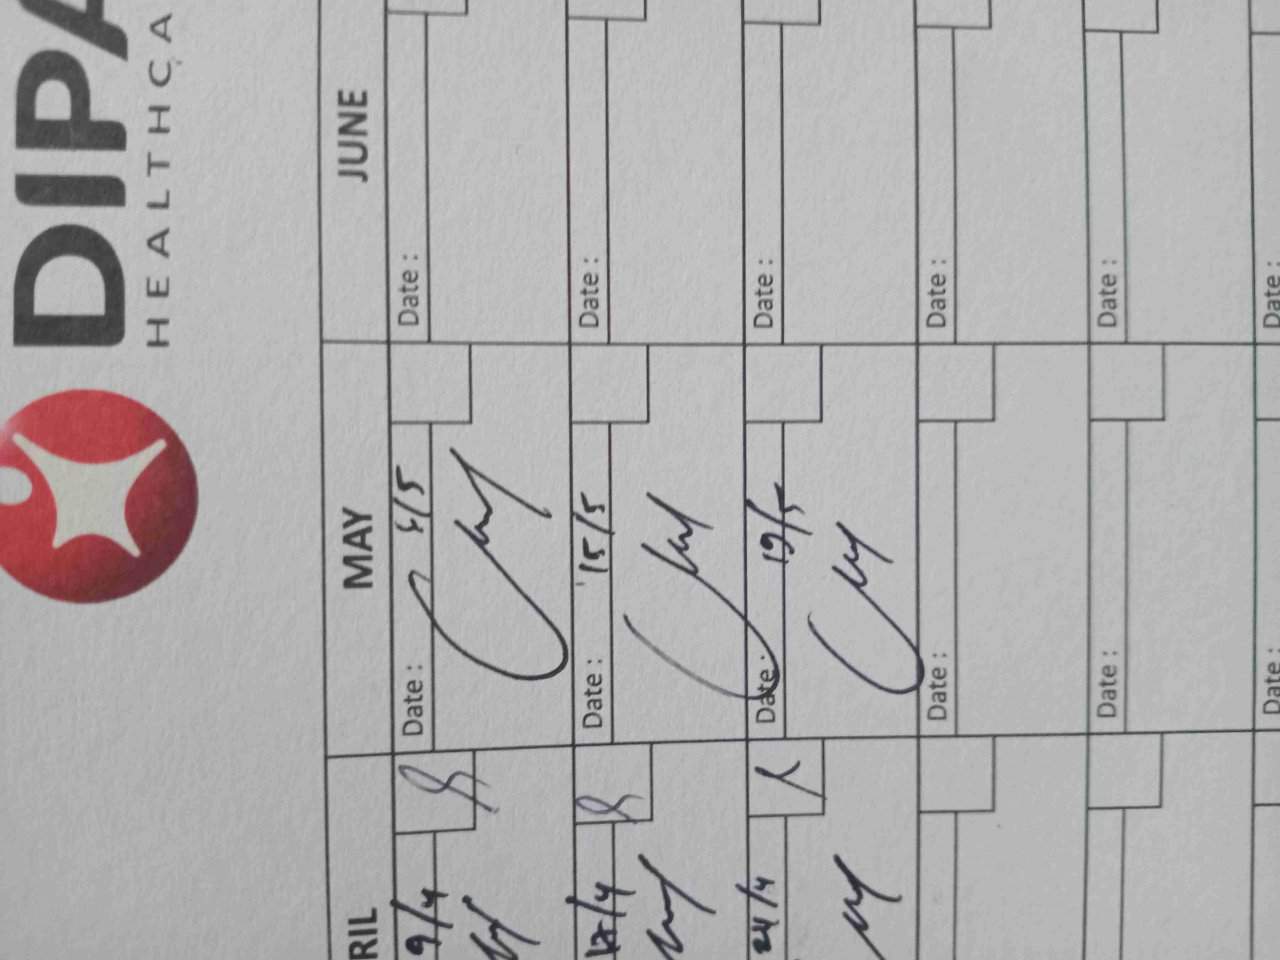 DIPA
HEALTHCA
RIL MAY JUNE
9/4 Date : 8/5 Date :
17/4 Date : 15/5 Date :
24/4 Date : 19/5 Date :
Date : Date :
Date : Date :
Date : Date :